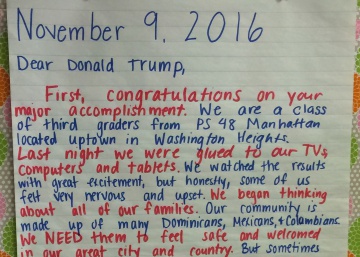 November 9, 2016
Dear Donald Trump,
First, congratulations on your
major accomplishment. We are a class
of third graders from PS 48 Manhattan
located uptown in Washington Heights.
Last night we were glued to our TVs,
computers and tablets. We watched the results
with great excitement, but honestly, some of us
felt very nervous and upset. We began thinking
about all of our families. Our community is
made up of many Dominicans, Mexicans, & Colombians.
We NEED them to feel safe and welcomed
in our great city and country. But sometimes